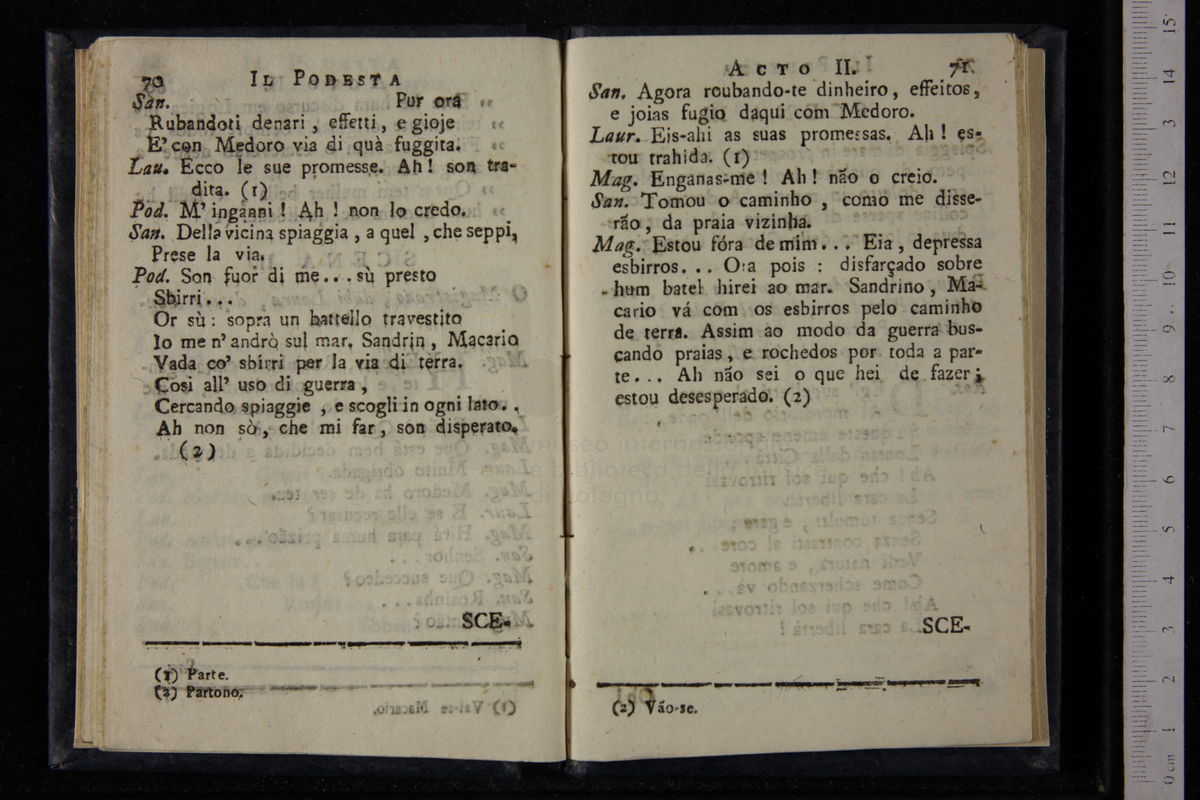 70 IL PODESTA
San. Pur ora
Rubandoti denari, effetti, e gioje
E' con Medoro via di quà fuggita.
Lau. Ecco le sue promesse. Ah! son tra-
dita. (1)
Pod. M' inganni! Ah! non lo credo.
San. Della vicina spiaggia, a quel, che seppi,
Prese la via.
Pod. Son fuor di me... sù presto
Sbirri...
Or sù: sopra un battello travestito
Io me n' andrò sul mar. Sandrin, Macario
Vada co' sbirri per la via di terra.
Cosi all' uso di guerra,
Cercando spiaggie, e scogli in ogni lato..
Ah non sò, che mi far, son disperato.
(2)
SCE-
(1) Parte.
(2) Partono.
ACTO II. 71
San. Agora roubando-te dinheiro, effeitos,
e joias fugio daqui com Medoro.
Laur. Eis-ahi as suas promessas. Ah! es-
tou trahida. (1)
Mag. Enganas-me! Ah! não o creio.
San. Tomou o caminho, como me disse-
rão, da praia vizinha.
Mag. Estou fóra de mim... Eia, depressa
esbirros... Ora pois: disfarçado sobre
hum batel hirei ao mar. Sandrino, Ma-
cario vá com os esbirros pelo caminho
de terra. Assim ao modo da guerra bus-
cando praias, e rochedos por toda a par-
te... Ah não sei o que hei de fazer;
estou desesperado. (2)
SCE-
(2) Vão-se.
museo internazionale
e biblioteca della musica
di bologna